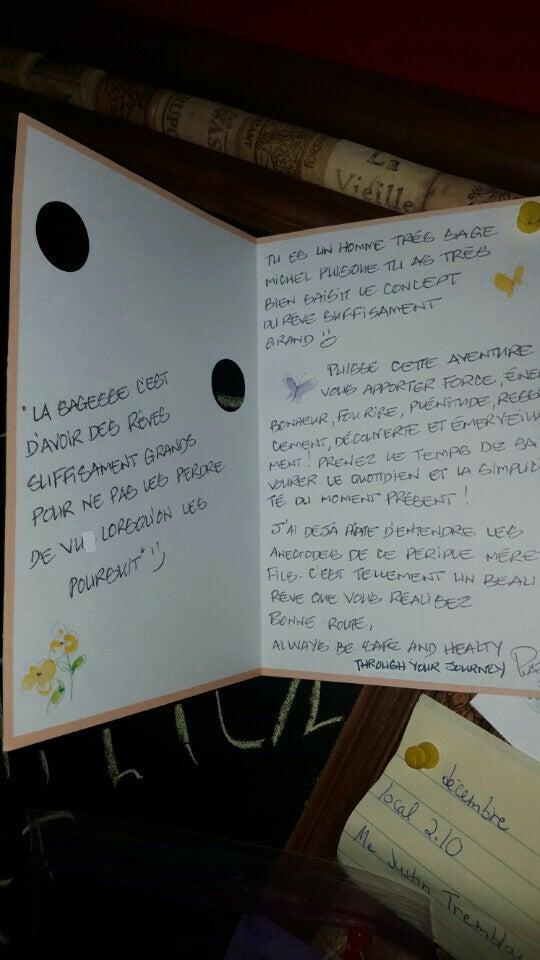 La
Vieille
"LA SAGESSE C'EST
D'AVOIR DES RÊVES
SUFFISAMENT GRANDS
POUR NE PAS LES PERDRE
DE VU LORSQU'ON LES
POURSUIT"
TU ES UN HOMME TRÉS SAGE
MICHEL PUISQUE TU AS TRÉS
BIEN SAISIT LE CONCEPT
DU RÊVE SUFFISAMENT
GRAND
PUISSE CETTE AVENTURE
VOUS APPORTER FORCE, ÉNE
BONHEUR, FOU RIRE, PLÉNITUDE, RESS
CEMENT, DÉCOUVERTE ET ÉMERVEILL
MENT! PRENEZ LE TEMPS DE SA
VOURER LE QUOTIDIEN ET LA SIMPLICI
TÉ DU MOMENT PRÉSENT!
J'AI DÉJÀ HÂTE D'ENTENDRE LES
ANECTODES DE CE PÉRIPLE MÉRE
FILS. C'EST TELLEMENT UN BEAU
RÊVE QUE VOUS RÉALISEZ
BONNE ROUTE,
ALWAYS BE SAFE AND HEALTY
THROUGH YOUR JOURNEY
décembre
local 2.10
Me Justin Tremblay